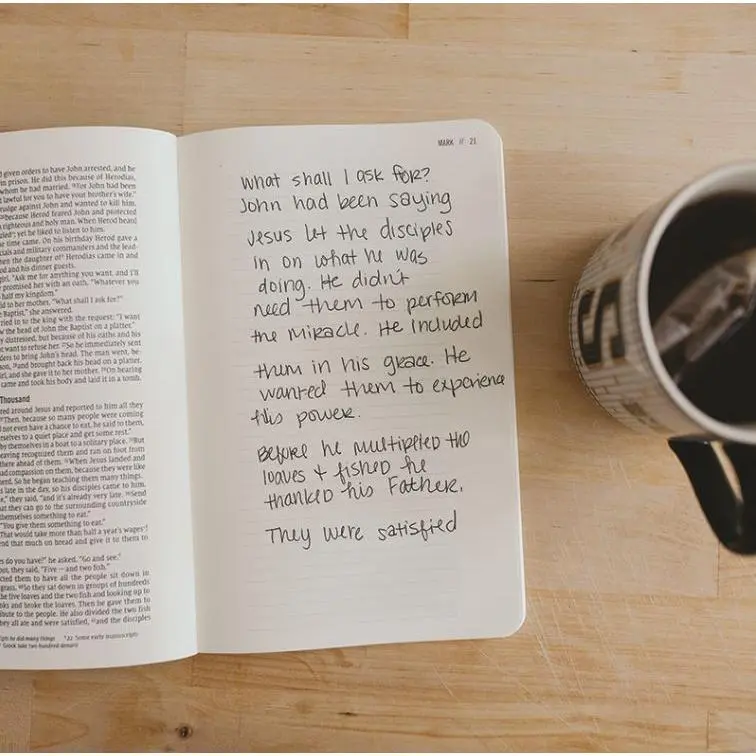 given orders to have John arrested, and he
in prison. He did this because of Herodias,
whom he had married. 18For John had been
lawful for you to have your brother's wife."
grudge against John and wanted to kill him.
because Herod feared John and protected
righteous and holy man. When Herod heard
yet he liked to listen to him.
time came. On his birthday Herod gave a
and military commanders and the lead-
the daughter of Herodias came in and
and his dinner guests.
"Ask me for anything you want, and I'll
promised her with an oath, "Whatever you
half my kingdom."
to her mother, "What shall I ask for?"
Baptist," she answered.
in to the king with the request: "I want
the head of John the Baptist on a platter."
distressed, but because of his oaths and his
want to refuse her. 27So he immediately sent
to bring John's head. The man went, be-
and brought back his head on a platter.
and she gave it to her mother. 29On hearing
came and took his body and laid it in a tomb.
Thousand
around Jesus and reported to him all they
Then, because so many people were coming
not even have a chance to eat, he said to them,
to a quiet place and get some rest."
by themselves in a boat to a solitary place. 33But
leaving recognized them and ran on foot from
there ahead of them. 34When Jesus landed and
had compassion on them, because they were like
So he began teaching them many things.
late in the day, so his disciples came to him.
they said, "and it's already very late. 36Send
that they can go to the surrounding countryside
themselves something to eat."
"You give them something to eat."
That would take more than half a year's wages!
that much on bread and give it to them to
do you have?" he asked. "Go and see."
they said, "Five — and two fish."
them to have all the people sit down in
grass. 40So they sat down in groups of hundreds
the five loaves and the two fish and looking up to
and broke the loaves. Then he gave them to
to the people. He also divided the two fish
They all ate and were satisfied, 43and the disciples
he did many things 22 Some early manuscripts
Greek take two hundred denarii
MARK // 21
What shall I ask for?
John had been saying
Jesus let the disciples
in on what he was
doing. He didn't
need them to perform
the miracle. He included
them in his grace. He
wanted them to experience
this power.
Before he multipleed the
loaves + fished he
thanked his Father.
They were satisfied
S